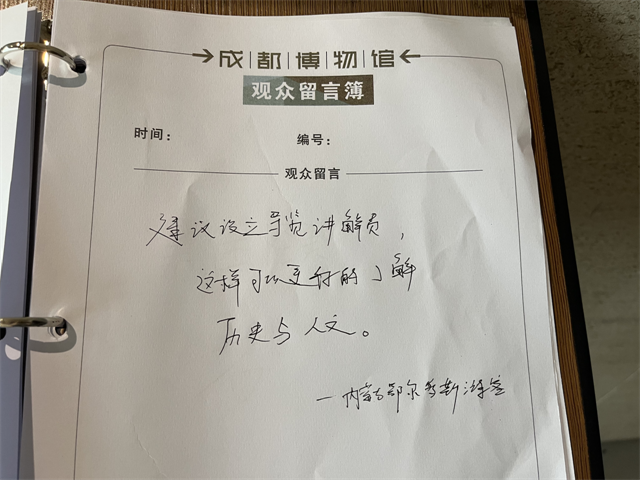 成都博物馆
观众留言簿
时间： 编号：
观众留言
建议设立导览讲解员，
这样可以更好的了解
历史与人文。
—内蒙古鄂尔多斯游客